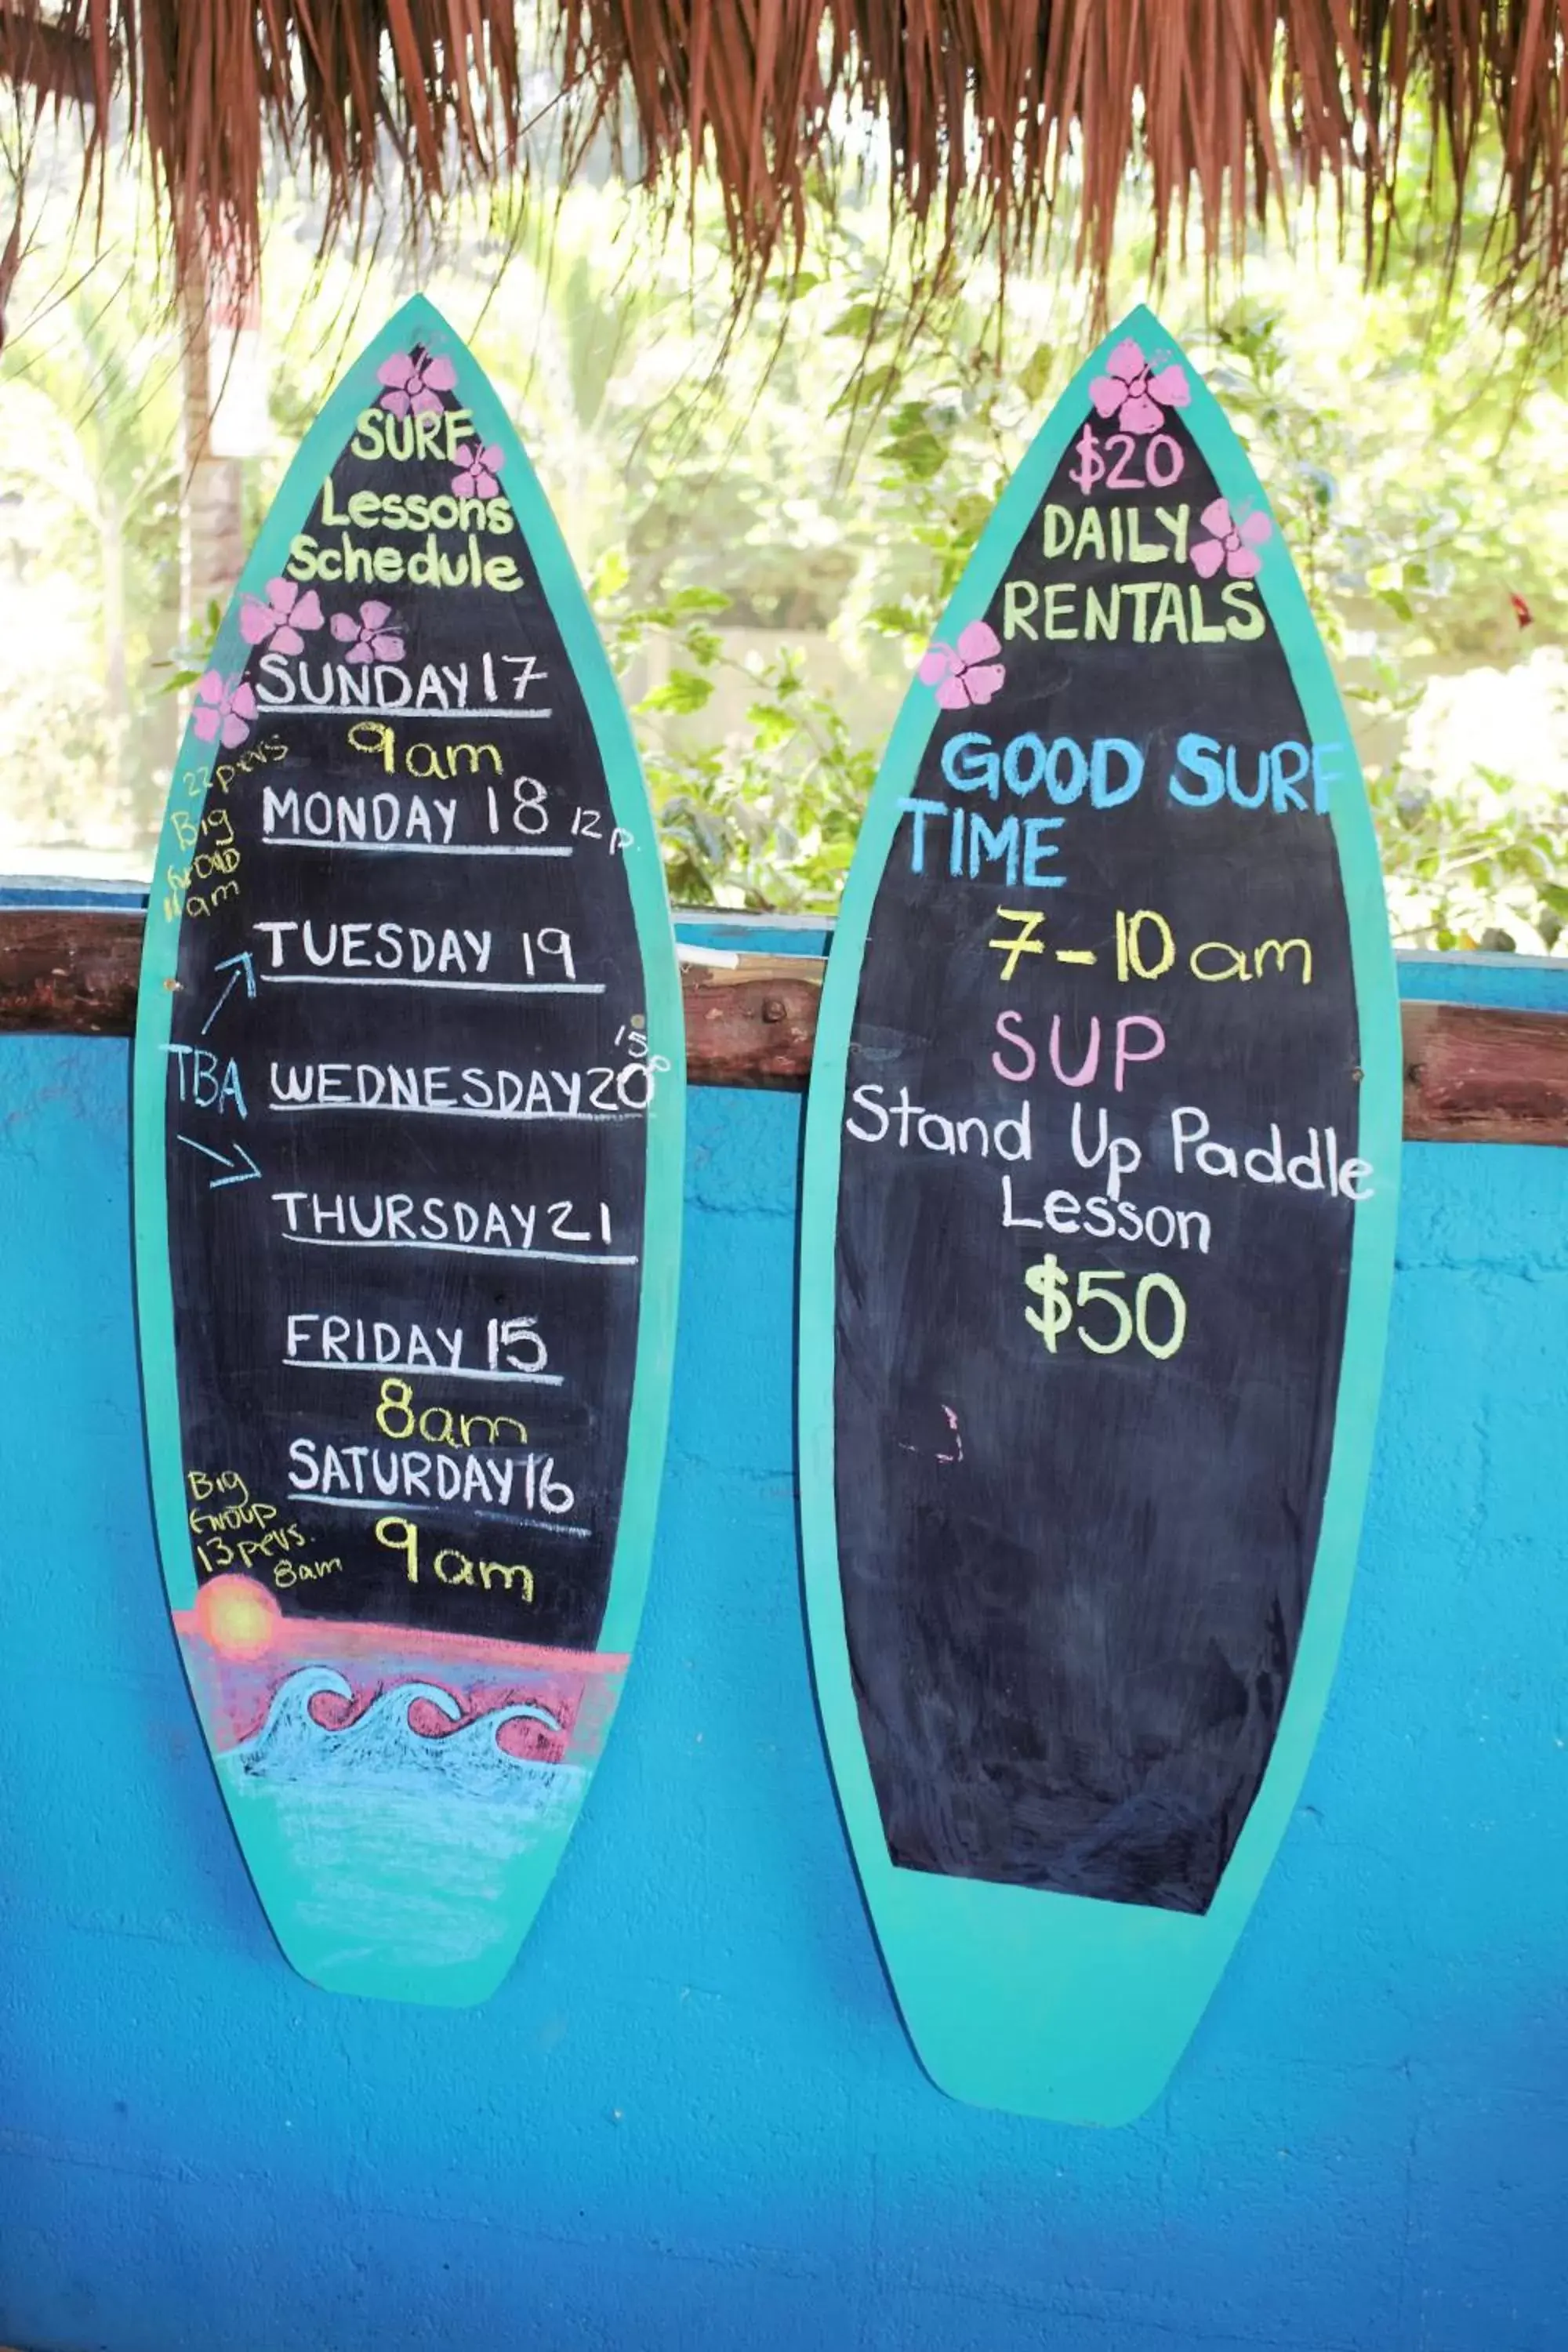 SURF
Lessons
Schedule
SUNDAY 17
9am
22pers
Big
11am
MONDAY 18 12p.
TUESDAY 19
TBA
WEDNESDAY 20
15p
THURSDAY 21
FRIDAY 15
8am
SATURDAY 16
Big
Group
13pers.
8am
9am
$20
DAILY
RENTALS
GOOD SURF
TIME
7-10am
SUP
Stand Up Paddle
Lesson
$50